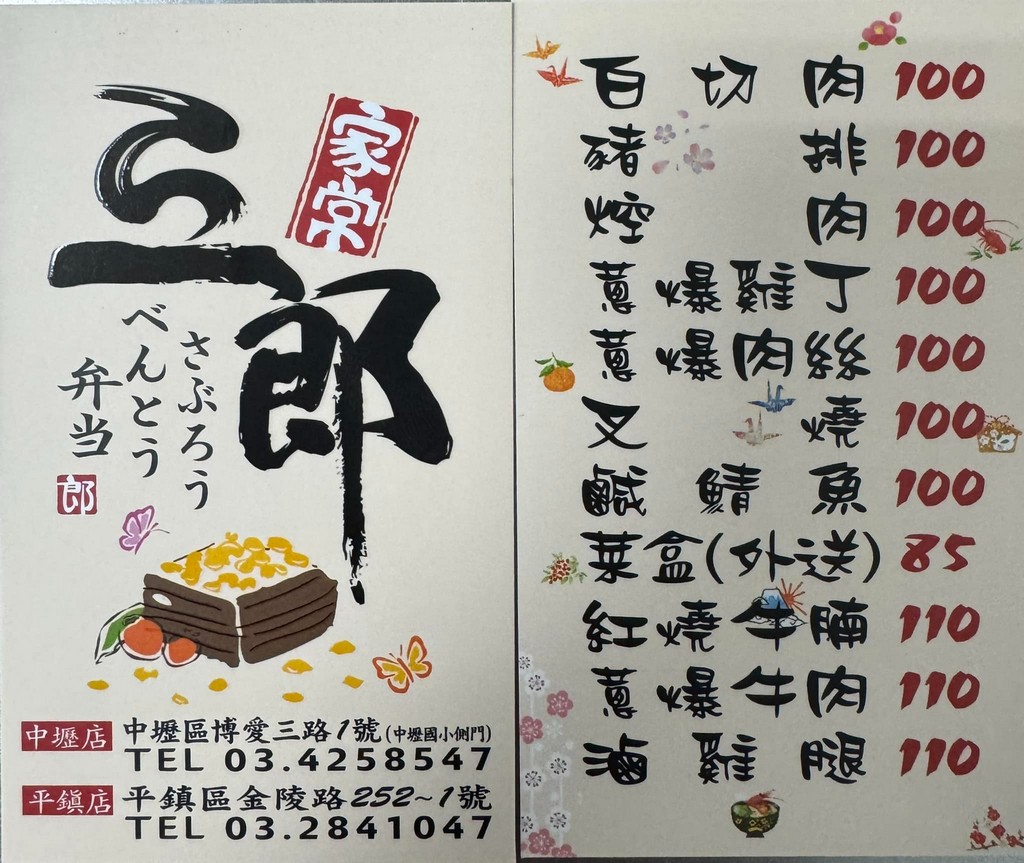 家常
三郎
さぶろう
べんとう
弁当
郎
中壢店 中壢區博愛三路1號(中壢國小側門)
TEL 03.4258547
平鎮店 平鎮區金陵路252~1號
TEL 03.2841047
白切肉 100
豬排 100
焢肉 100
蔥爆雞丁 100
蔥爆肉絲 100
叉燒 100
鹹鯖魚 100
菜盒(外送) 85
紅燒牛腩 110
蔥爆牛肉 110
滷雞腿 110